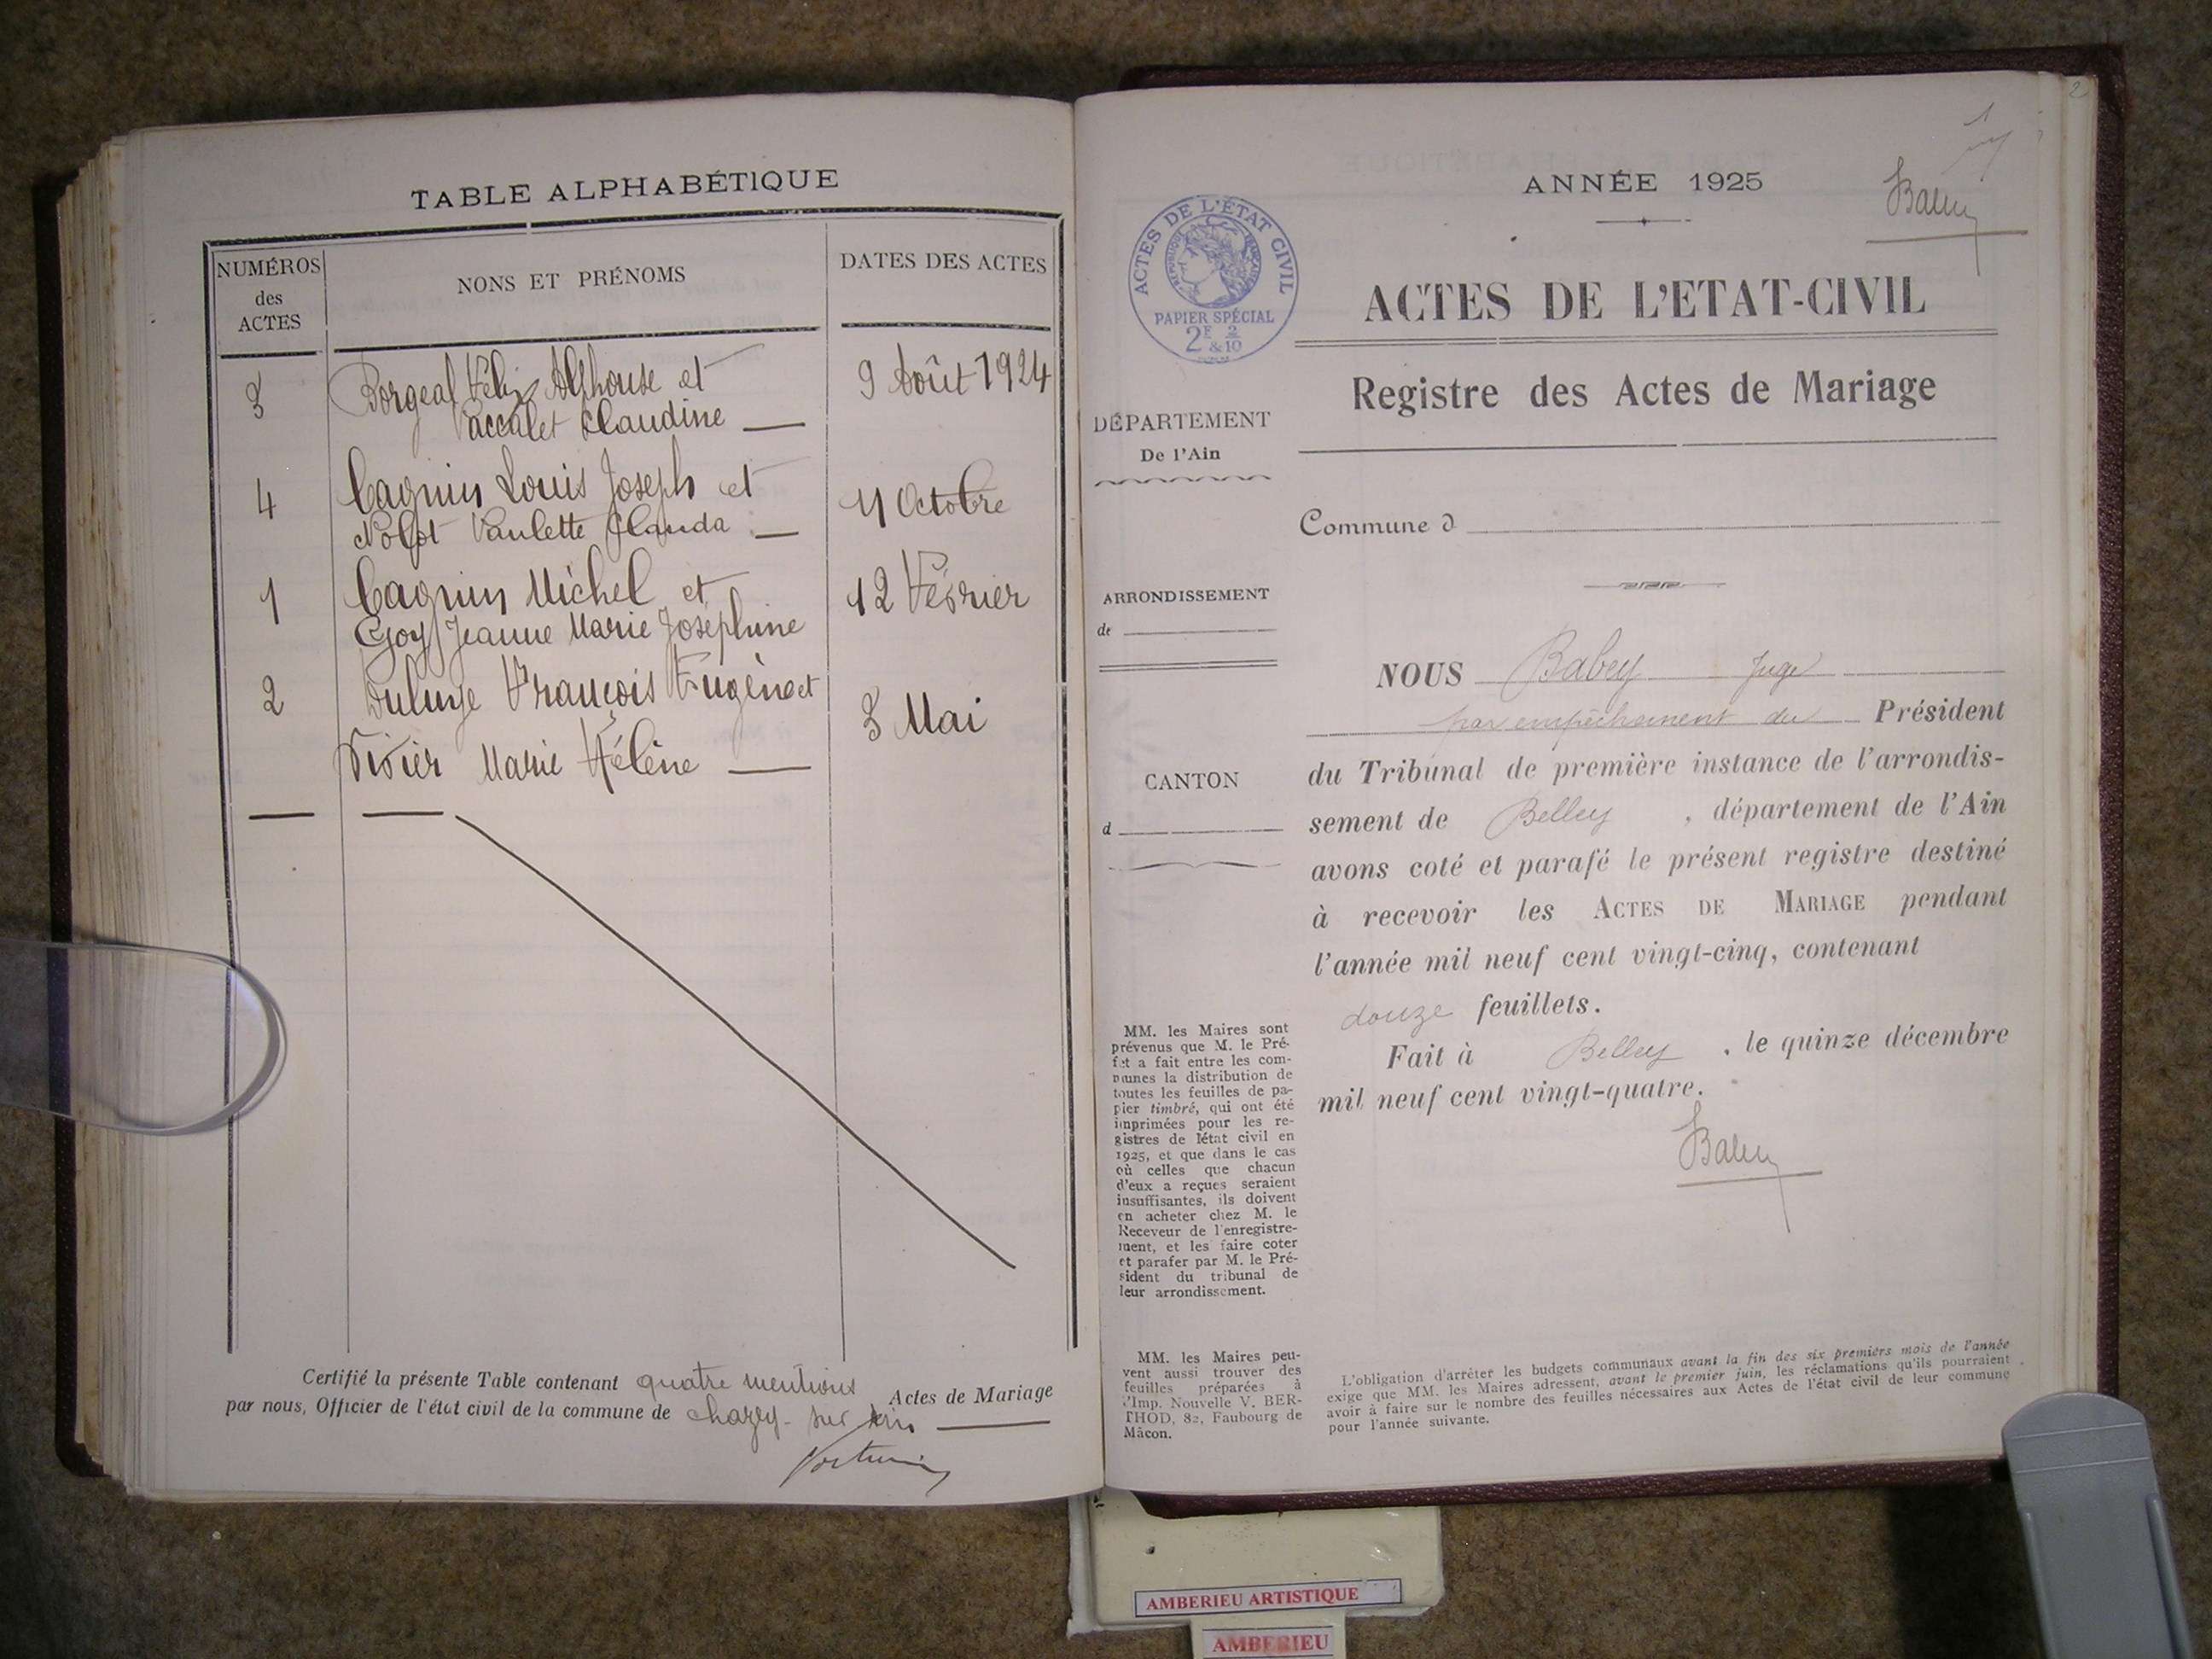 TABLE ALPHABÉTIQUE
NUMÉROS
des
ACTES
NONS ET PRÉNOMS
DATES DES ACTES
3 Borgeal Félix Alphonse et 9 Août 1924
Vaccalet Claudine
4 Cagnin Louis Joseph et 11 Octobre
Paulette Clauda
1 Cagnin Michel et 12 Février
Goy Jeanne Marie Joséphine
2 François Eugène et
3 Mai
Vivier Marie Hélène
Certifié la présente Table contenant quatre mentions Actes de Mariage
par nous, Officier de l'état civil de la commune de chazey-sur ain
2
1
Babey
ANNÉE 1925
ACTES DE L'ÉTAT CIVIL
RÉPUBLIQUE FRANÇAISE
PAPIER SPÉCIAL
2F 2
&10
ACTES DE L'ETAT-CIVIL
Registre des Actes de Mariage
DÉPARTEMENT
De l'Ain
Commune d
ARRONDISSEMENT
de
CANTON
d
NOUS Babey Juge
par empêchement du Président
du Tribunal de première instance de l'arrondis-
sement de Belley , département de l'Ain
avons coté et parafé le présent registre destiné
à recevoir les ACTES DE MARIAGE pendant
l'année mil neuf cent vingt-cinq, contenant
douze feuillets.
Fait à Belley , le quinze décembre
mil neuf cent vingt-quatre.
Babey
MM. les Maires sont
prévenus que M. le Pré-
fet a fait entre les com-
munes la distribution de
toutes les feuilles de pa-
pier timbré, qui ont été
imprimées pour les re-
gistres de létat civil en
1925, et que dans le cas
où celles que chacun
d'eux a reçues seraient
insuffisantes, ils doivent
en acheter chez M. le
Receveur de l'enregistre-
ment, et les faire coter
et parafer par M. le Pré-
sident du tribunal de
leur arrondissement.
MM. les Maires peu-
vent aussi trouver des
feuilles préparées à
l'Imp. Nouvelle V. BER-
THOD, 82, Faubourg de
Mâcon.
L'obligation d'arrêter les budgets communaux avant la fin des six premiers mois de l'année
exige que MM. les Maires adressent, avant le premier juin, les réclamations qu'ils pourraient
avoir à faire sur le nombre des feuilles nécessaires aux Actes de l'état civil de leur commune
pour l'année suivante.
AMBERIEU ARTISTIQUE
AMBERIEU